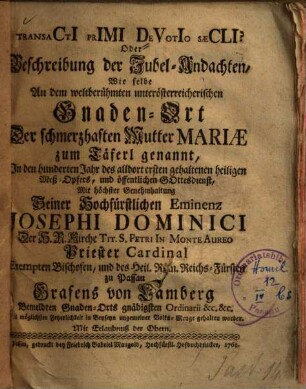 TRANSACTI PRIMI DEVOTIO SÆCLI?
Oder
Beschreibung der Jubel-Andachten,
Wie selbe
An dem weltberühmten unterösterreicherischen
Gnaden-Ort
Der schmerzhaften Mutter MARIÆ
zum Täferl genannt,
In dem hunderten Jahr des alldort ersten gehaltenen heiligen
Meß-Opfers, und öffentlichen GOttesdienst,
Mit höchster Genehmhaltung
Seiner Hochfürstlichen Eminenz
JOSEPHI DOMINICI
Der H. R. Kirche TIT. S. PETRI IN MONTE AUREO
Priester Cardinal
Exempten Bischofen, und des Heil. Röm. Reichs-Fürsten
zu Passau
Grafens von Lamberg
Bemeldten Gnaden-Orts gnädigsten Ordinarii &c. &c.
in möglichster Feyerlichkeit in Beyseyn ungemeiner Volks-Menge gehalten worden.
Mit Erlaubnuß der Obern.
Passau, gedruckt bey Friderich Gabriel Mangold, Hochfürstl. Hofbuchdrucker, 1761.
Homil
IV